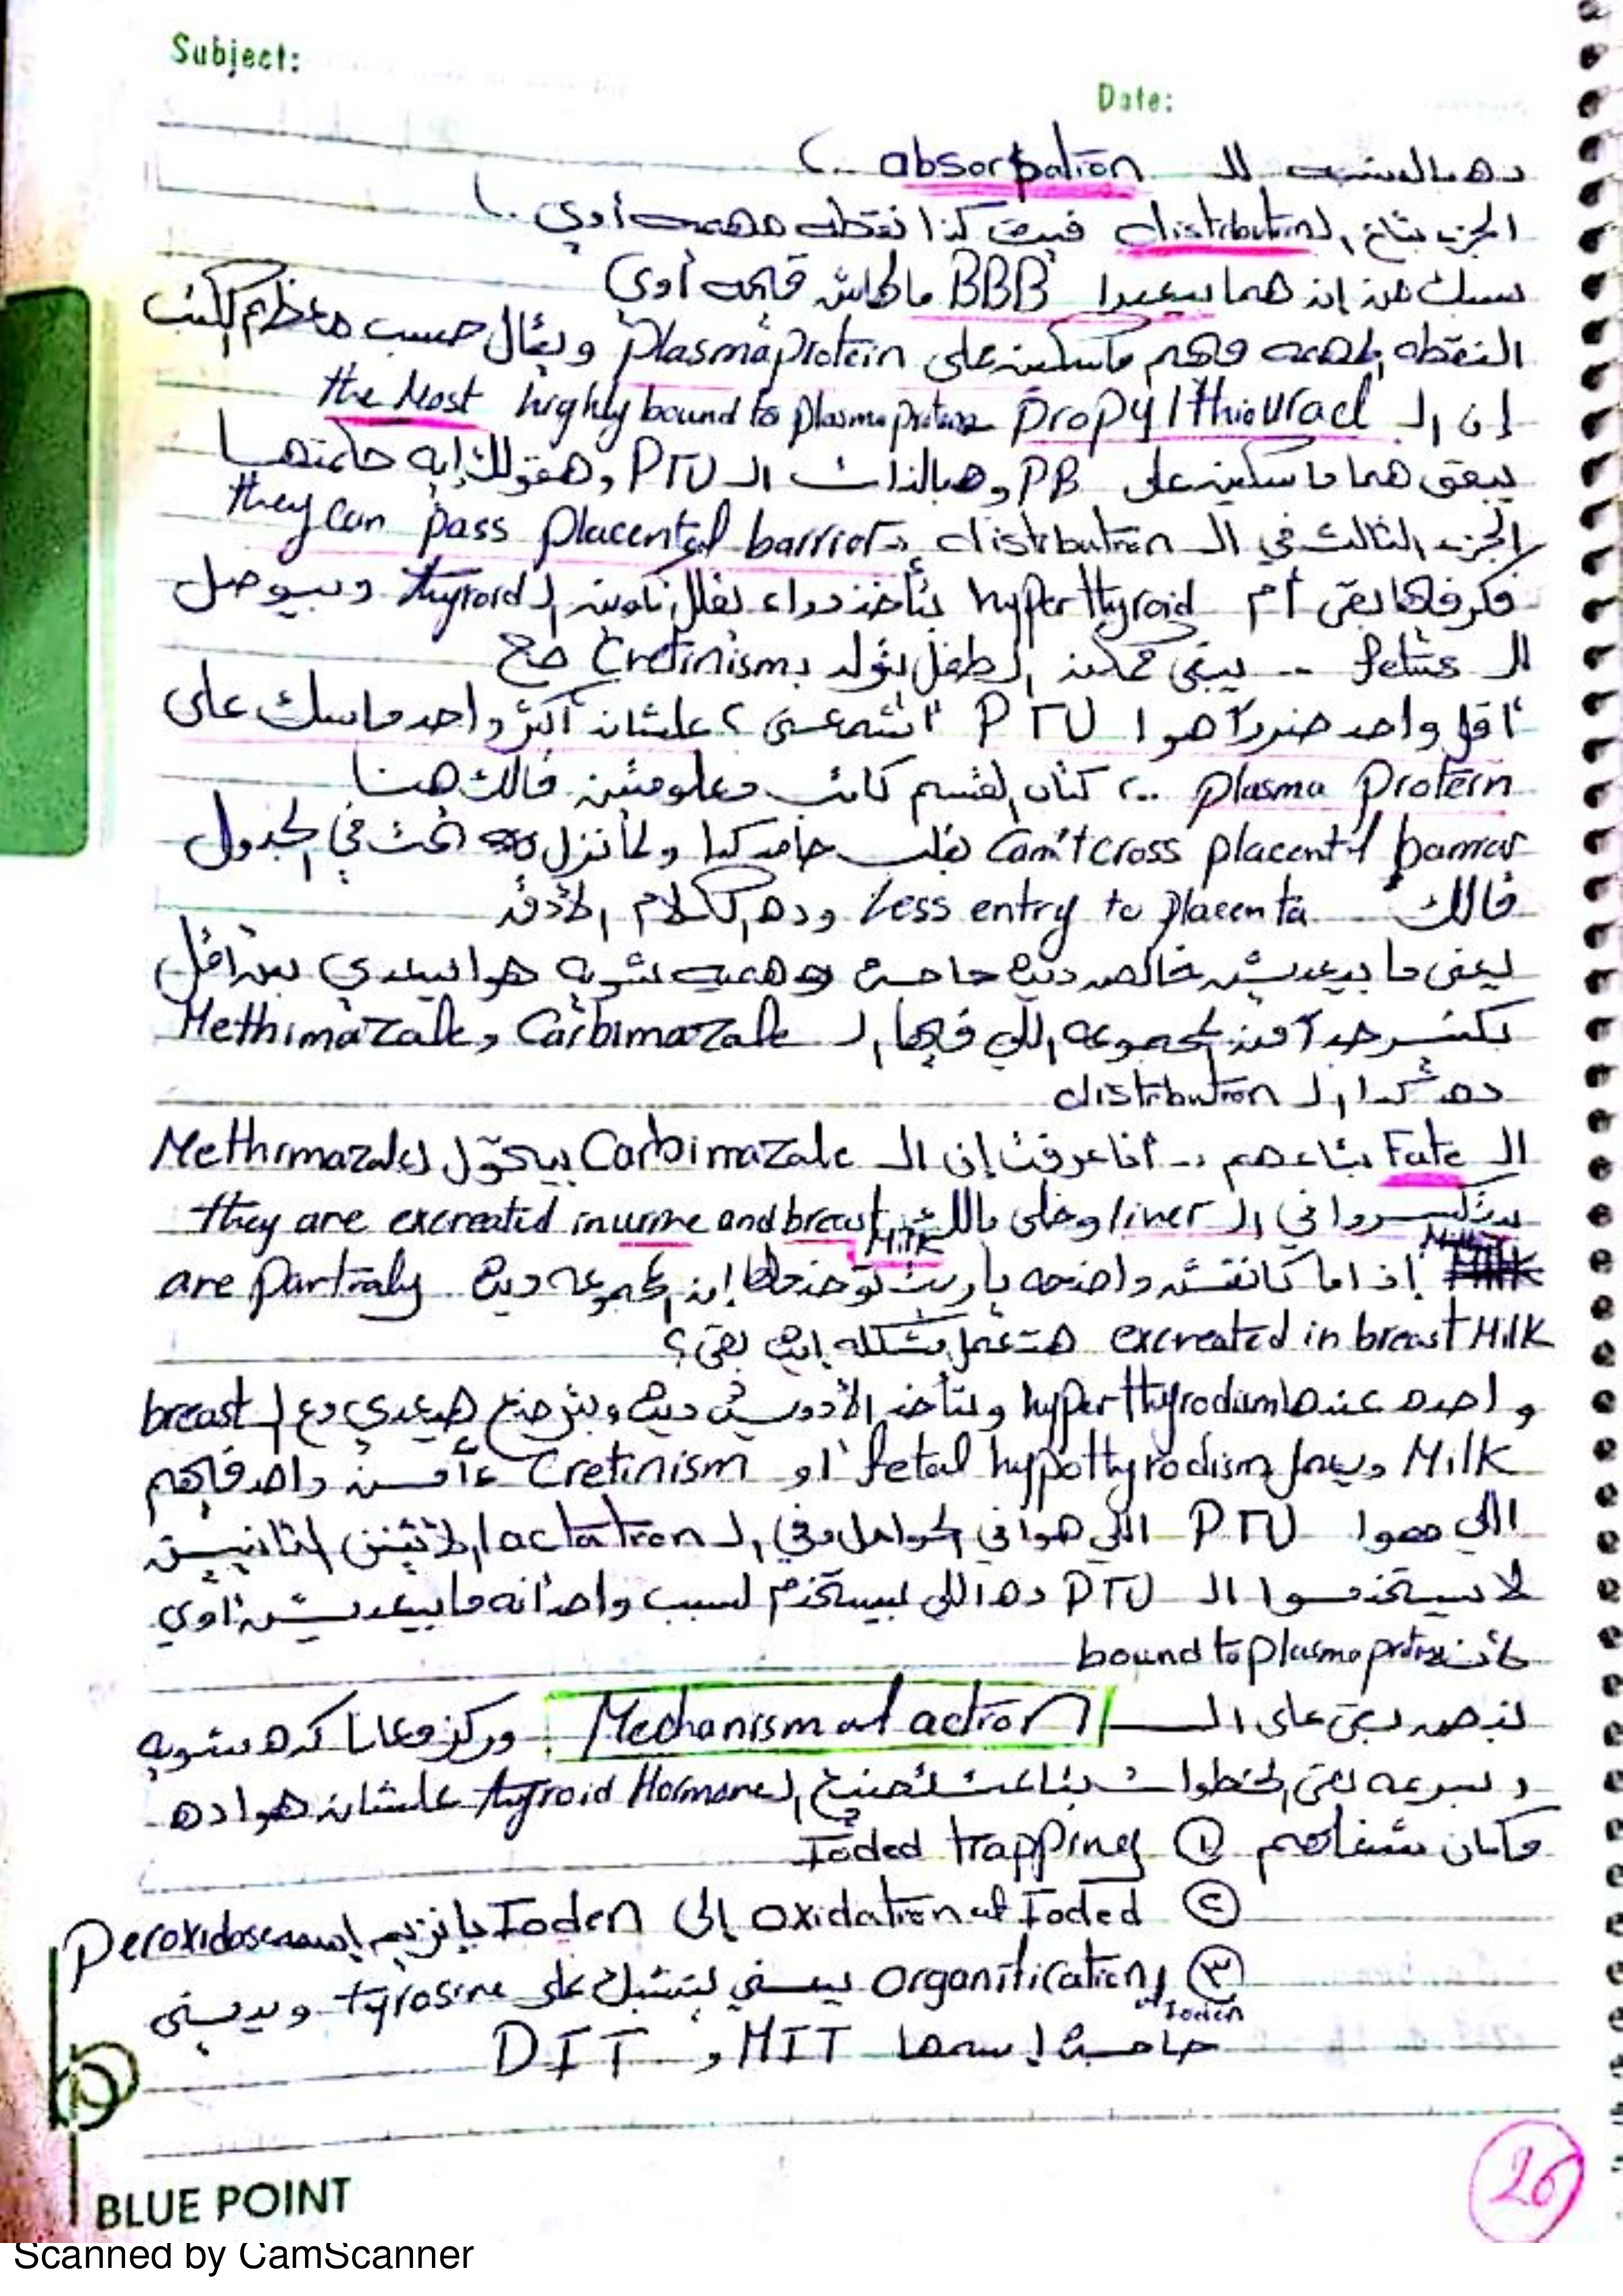 Subject:
Date:
ده بالنسبه لل absorpation ..
الجزء بتاع ال distribution فيه كذا نقطه مهمه أوي ..
سيبك من إن هما بيعبروا BBB مالهاش قيمه أوي
النقطه المهمه وهم ماسكين على plasma protein ويقال حسب معظم الكتب
إن ال propylthiouracl the Most highly bound to plasma protein
يبقى هما ماسكين على PB وبالذات ال PTU وهقولك إيه حكمتها
الجزء الثالث في ال distribution they can pass placental barrier
فكر فيها بقى أم hyperthyroid بتأخذ دواء يقلل تكوين ال thyroid وبيوصل
لل fetus .. يبقى ممكن الطفل يتولد ب Cretinism صح
أقل واحد ضرراً هوا PTU اشمعنى ؟ علشان أكثر واحد ماسك على
plasma protein .. كتاب القسم كاتب معلومتين قالك هنا
can't cross placental barriar قلب جامد كدا ولما نزل تحت في الجدول
قالك less entry to placenta وده الكلام الأدق
يعني ما بيعديش خالص ديه حاجه وهميه شويه هوا بيعدي بس أقل
بكتير جداً من المجموعه اللي فيها ال Carbimazale و Methimazale
ده كدا ال distribution
ال Fate بتاعهم .. أنا عرفت إن ال Carbimazale بيتحول ل Methimazale
بيتكسروا في ال liver وخلى بالك they are excreated in urine and breast Milk
إذا ما كانتش واضحه ياريت توضحها إن المجموعه ديه are partialy
excreated in breast Milk هتعمل مشكله إيه بقى؟
واحده عندها hyperthyrodism وبتأخذ الأدويه ديه وبترضع هيعدي مع ال breast
Milk ويعمل fetal hypothyrodism أو Cretinism وأحسن واحد فيهم
اللي هوا PTU اللي هوا في الحوامل وفي ال lactation الإتنين التانيين
لا يستخدموا ال PTU ده اللي بيستخدم لسبب واحد أنه ما بيعديش أوي
لأنه bound to plasma protein
نبص بقى على ال Mechanism of action وركز معانا كده شويه
وبسرعه بقى الخطوات بتاعت تصنيع ال thyroid Hormone علشان هوا ده
مكان شغلهم ① Ioded trapping
② oxidation of Ioded إلى Ioden بإنزيم إسمه peroxidase
③ organification of Ioden يعني يتشبك على tyrosine ويديني
حاجه إسمها MIT و DIT
BLUE POINT
26
Scanned by CamScanner